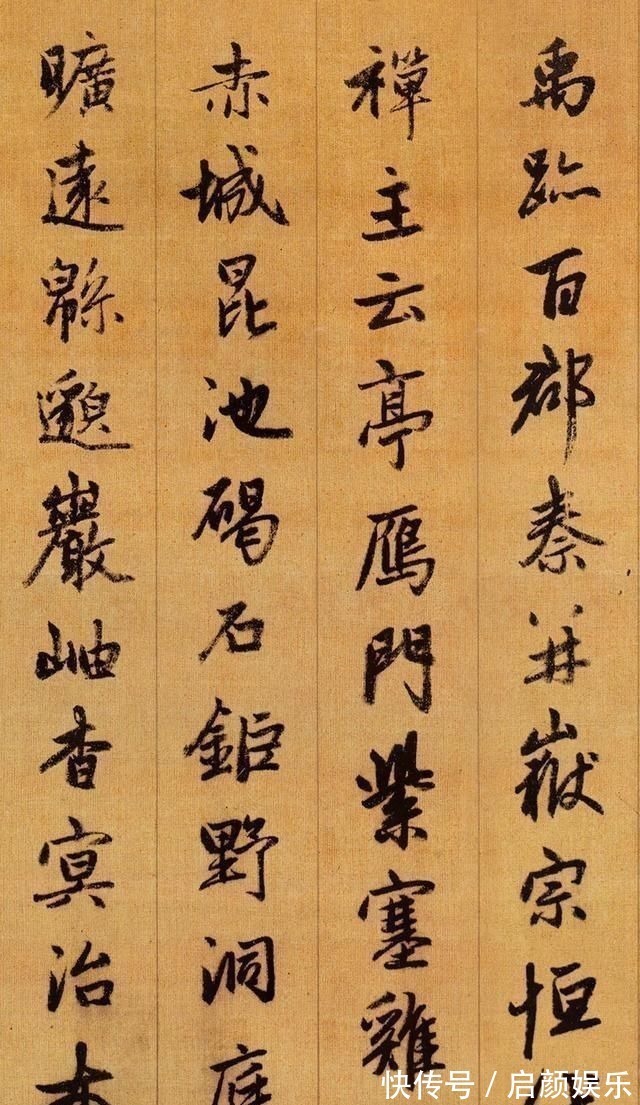 禹跡百郡秦并嶽宗恒
禪主云亭鴈門紫塞雞
赤城昆池碣石鉅野洞庭
曠遠緜邈巖岫杳冥治本
快传号 / 启颜娱乐